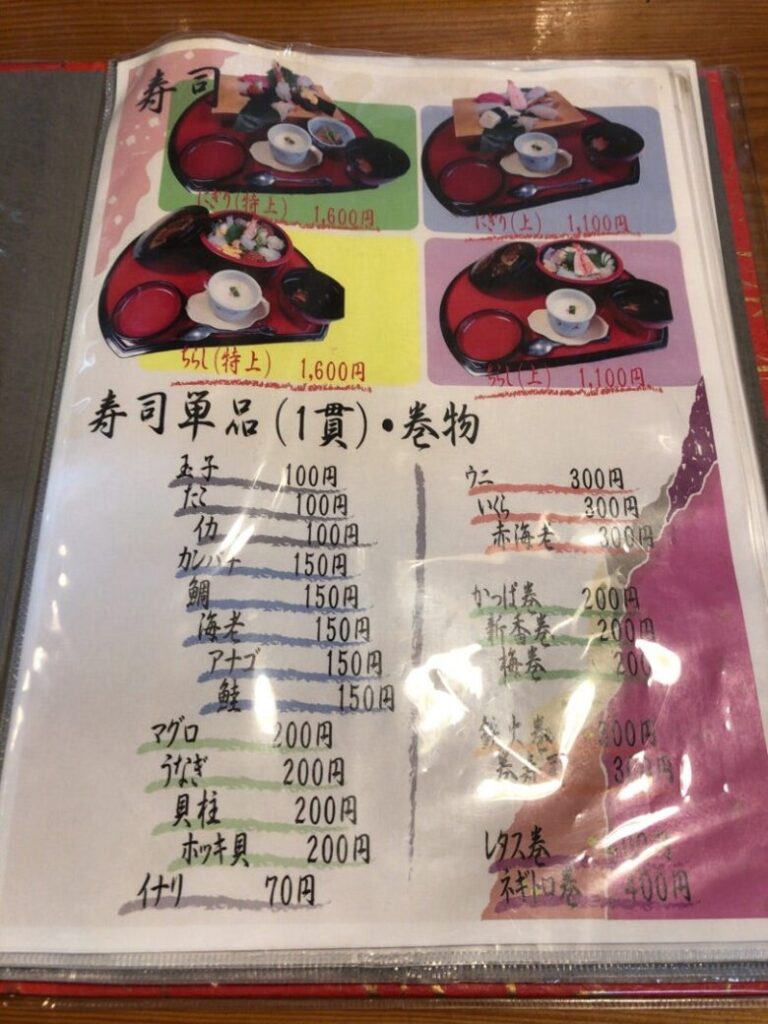 寿司
にぎり(特上) 1,600円
にぎり(上) 1,100円
ちらし(特上) 1,600円
ちらし(上) 1,100円
寿司単品(1貫)・巻物
玉子 100円
たこ 100円
イカ 100円
カンパチ 150円
鯛 150円
海老 150円
アナゴ 150円
鮭 150円
マグロ 200円
うなぎ 200円
貝柱 200円
ホッキ貝 200円
イナリ 70円
ウニ 300円
いくら 300円
赤海老 300円
かっぱ巻 200円
新香巻 200円
梅巻 200
鉄火巻 300円
巻寿司 300円
レタス巻
ネギトロ巻 400円